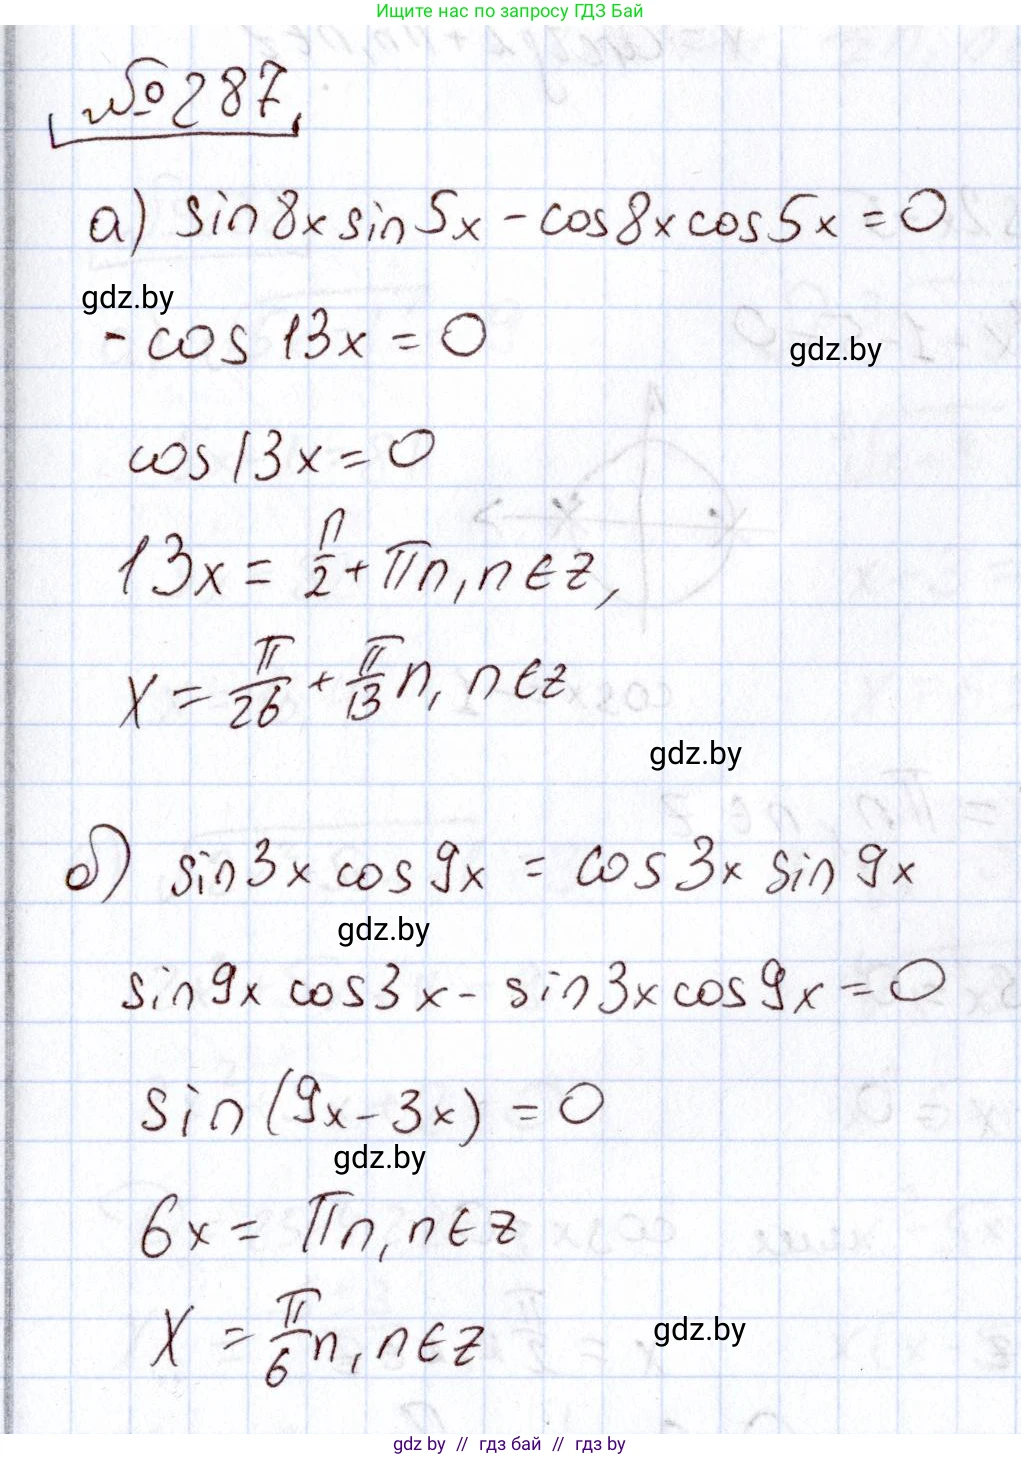 Ищите нас по запросу ГДЗ Бай
№287
а) sin8x sin5x - cos8x cos5x = 0
gdz.by
- cos 13x = 0
gdz.by
cos13x = 0
13x = π/2 + πn, n∈z,
x = π/26 + π/13 n, n∈z
gdz.by
б) sin3x cos9x = cos3x sin9x
gdz.by
sin9x cos3x - sin3x cos9x = 0
sin(9x - 3x) = 0
gdz.by
6x = πn, n∈z
x = π/6 n, n∈z
gdz.by
gdz by // гдз бай // гдз by